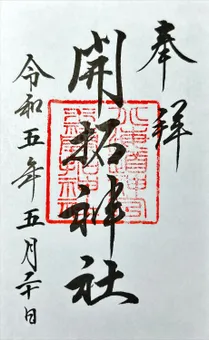 奉拝
開拓神社
令和五年五月二十日